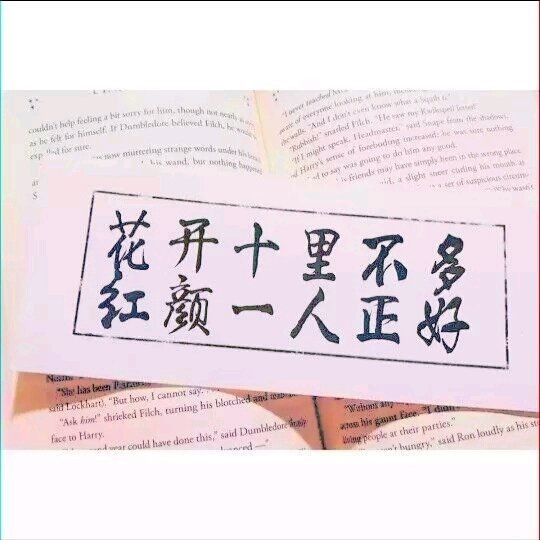 couldn't help feeling a bit sorry for him, though not nearly as
as he felt for himself. If Dumbledore believed Filch, he would
expelled for sure.
was now muttering strange words under his
his wand, but nothing happened
never touched
of everyone looking at him,
the walls. "And I don't even know what a Squib is."
"Rubbish!" snarled Filch. "He saw my Kwikspell letter!"
"If I might speak, Headmaster," said Snape from the shadows,
Harry's sense of foreboding increased; he was sure nothing
had to say was going to do him any good.
friends may have simply been in the wrong place
a slight sneer curling his mouth as
a set of suspicious circum-
花开十里不多
红颜一人正好
"She has been
said Lockhart). "But how, I cannot say.
"Ask him!" shrieked Filch, turning his blotched and
face to Harry.
year could have done this," said Dumbledore
"Without any
across his gaunt face. "I didn't
living people at their parties."
hungry," said Ron loudly as his